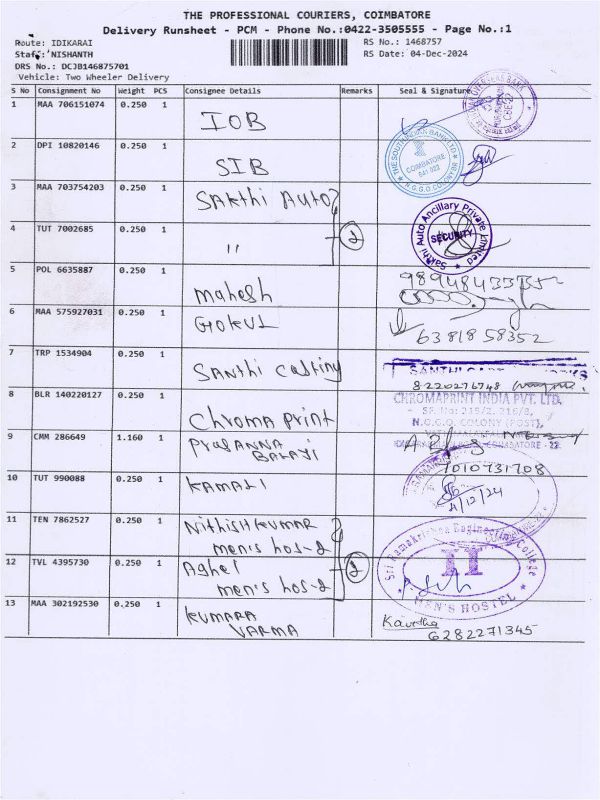 THE PROFESSIONAL COURIERS, COIMBATORE
Delivery Runsheet - PCM - Phone No.:0422-3505555 - Page No.:1
Route: IDIKARAI
RS No.: 1468757
Staff: NISHANTH
RS Date: 04-Dec-2024
DRS No.: DCJB146875701
Vehicle: Two Wheeler Delivery
S No Consignment No Weight PCS Consignee Details Remarks Seal & Signature
1 MAA 706151074 0.250 1 IOB
OVERSEAS BANK
2 DPI 10820146 0.250 1 SIB
THE SOUTH INDIAN BANK LTD
COIMBATORE
641 022
N.G.G.O. COLONY BR
3 MAA 703754203 0.250 1 Sakthi Auto
4 TUT 7002685 0.250 1 " 2
Sakthi Auto Ancillary Private Limited
SECURITY
5 POL 6635887 0.250 1 Mahesh
6 MAA 575927031 0.250 1 Gokul 6381858352
7 TRP 1534904 0.250 1 Santhi casting
8220276748
8 BLR 140220127 0.250 1 Chroma print
CHROMAPRINT INDIA PVT. LTD.
SF. No: 215/2, 216/8,
N.G.G.O. COLONY (POST),
COIMBATORE - 22
9 CMM 286649 1.160 1 Prasanna
Balaji
7010731708
10 TUT 990088 0.250 1 Kamali
4/12/24
11 TEN 7862527 0.250 1 Nithish Kumar
men's hos-2
12 TVL 4395730 0.250 1 Aghel 2
men's hos-2
Sri Ramakrishna Engineering College
II
MEN'S HOSTEL
13 MAA 302192530 0.250 1 Kumara
Varma
Kavitha
6282271345